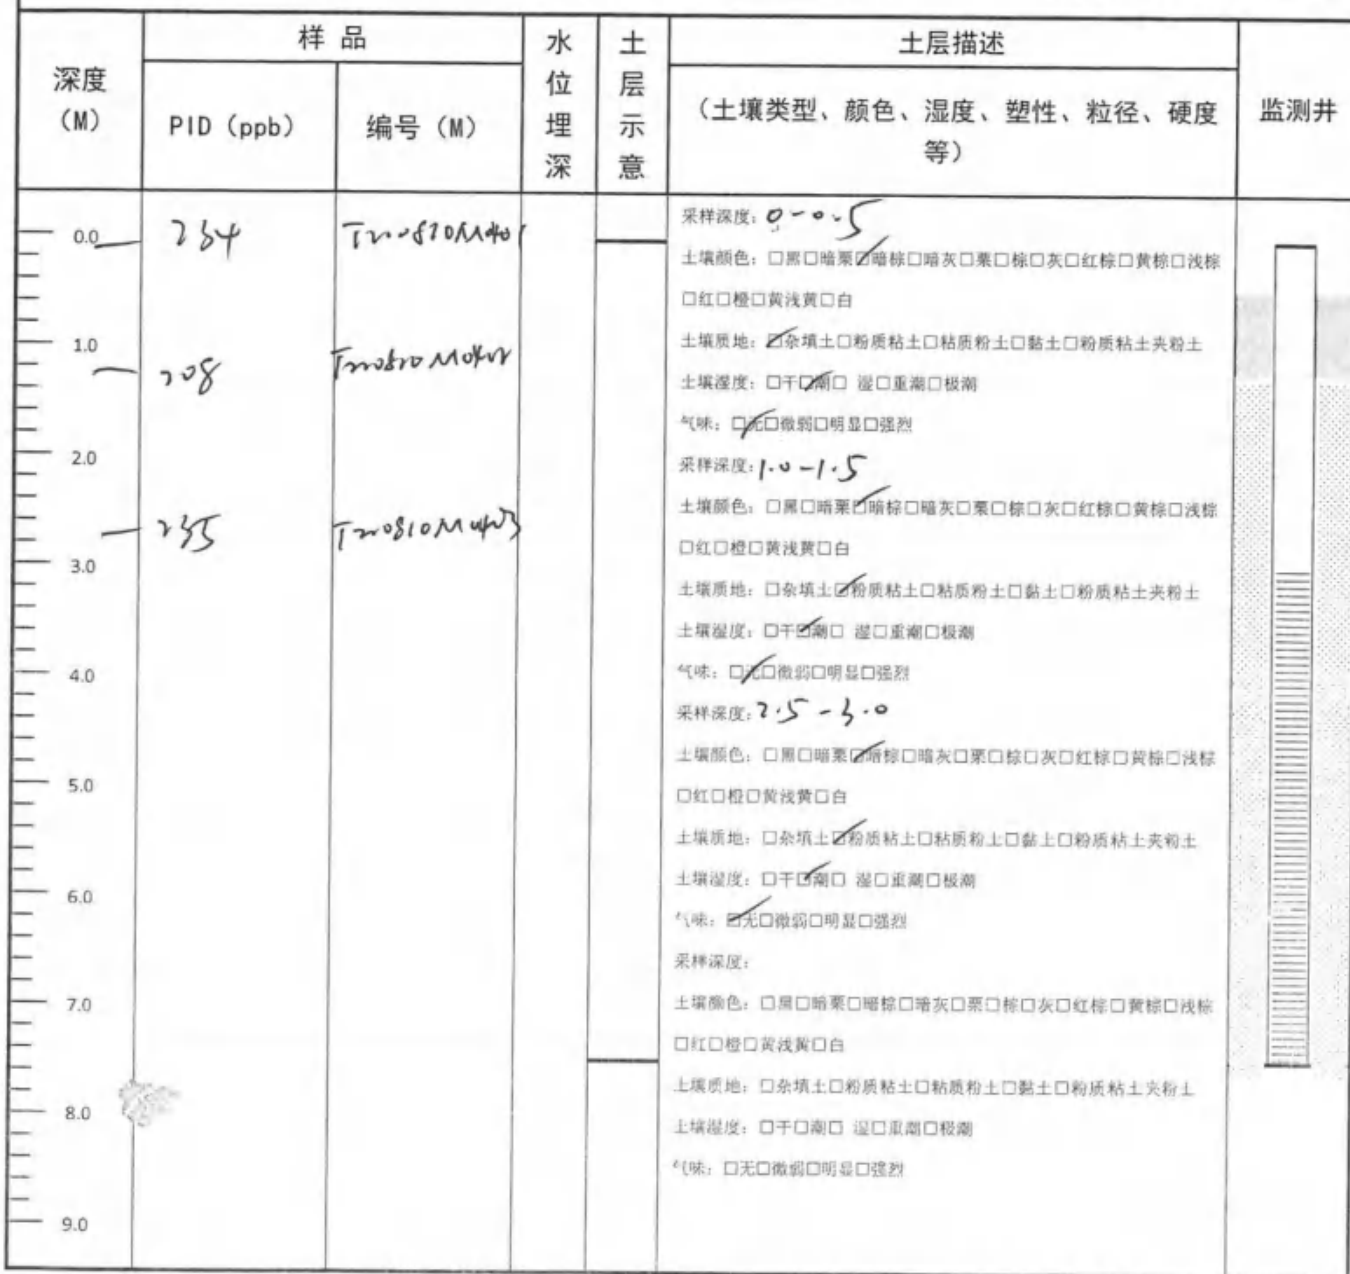 深度
(M)
样 品
PID (ppb)
编号 (M)
水位埋深
土层示意
土层描述
(土壤类型、颜色、湿度、塑性、粒径、硬度
等)
监测井
0.0
234
采样深度: 0-0.5
土壤颜色: ☐黑☐暗栗☑暗棕☐暗灰☐栗☐棕☐灰☐红棕☐黄棕☐浅棕
☐红☐橙☐黄浅黄☐白
1.0
208
土壤质地: ☑杂填土☐粉质粘土☐粘质粉土☐黏土☐粉质粘土夹粉土
土壤湿度: ☐干☑潮☐ 湿☐重潮☐极潮
气味: ☑无☐微弱☐明显☐强烈
2.0
采样深度: 1.0-1.5
土壤颜色: ☐黑☐暗栗☑暗棕☐暗灰☐栗☐棕☐灰☐红棕☐黄棕☐浅棕
235
☐红☐橙☐黄浅黄☐白
3.0
土壤质地: ☐杂填土☑粉质粘土☐粘质粉土☐黏土☐粉质粘土夹粉土
土壤湿度: ☐干☑潮☐ 湿☐重潮☐极潮
4.0
气味: ☑无☐微弱☐明显☐强烈
采样深度: 2.5-3.0
土壤颜色: ☐黑☐暗栗☑暗棕☐暗灰☐栗☐棕☐灰☐红棕☐黄棕☐浅棕
5.0
☐红☐橙☐黄浅黄☐白
土壤质地: ☐杂填土☑粉质粘土☐粘质粉土☐黏土☐粉质粘土夹粉土
土壤湿度: ☐干☑潮☐ 湿☐重潮☐极潮
6.0
气味: ☑无☐微弱☐明显☐强烈
采样深度:
7.0
土壤颜色: ☐黑☐暗栗☐暗棕☐暗灰☐栗☐棕☐灰☐红棕☐黄棕☐浅棕
☐红☐橙☐黄浅黄☐白
土壤质地: ☐杂填土☐粉质粘土☐粘质粉土☐黏土☐粉质粘土夹粉土
8.0
土壤湿度: ☐干☐潮☐ 湿☐重潮☐极潮
气味: ☐无☐微弱☐明显☐强烈
9.0